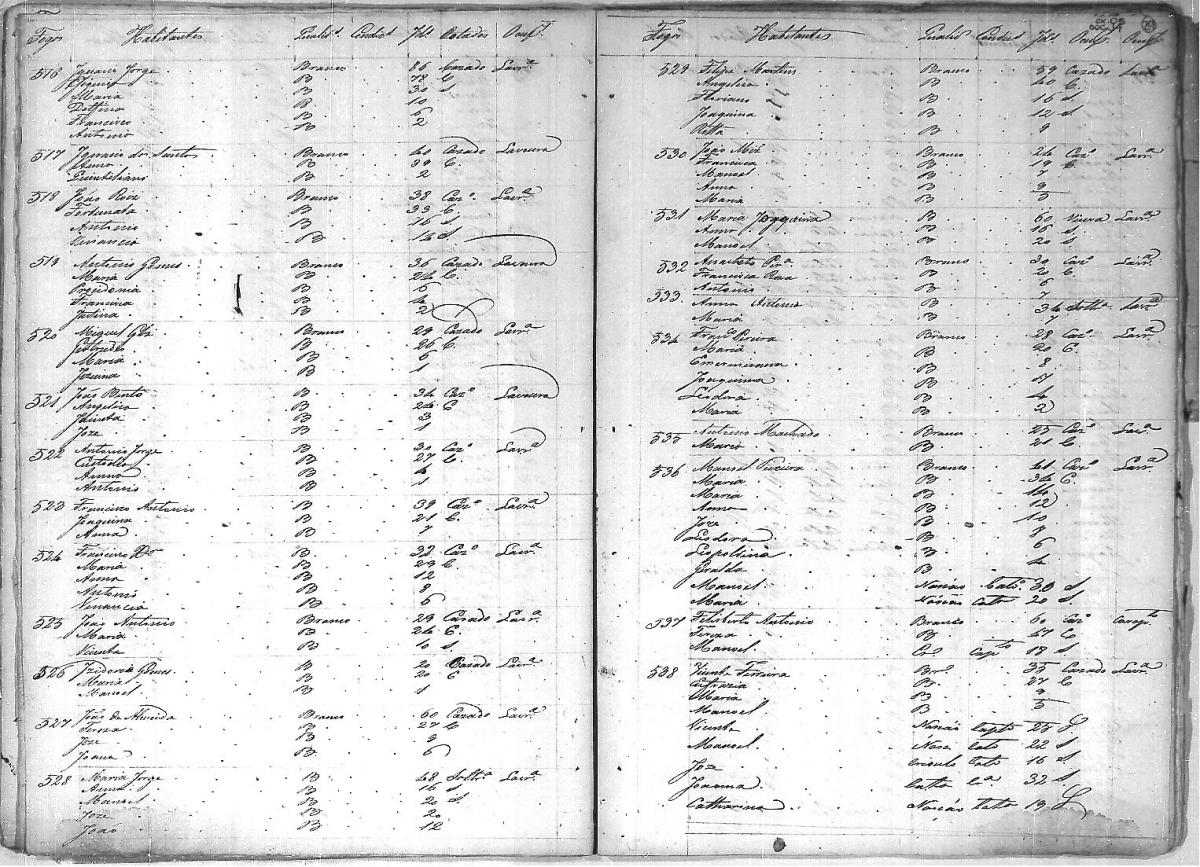 Fogos Habitantes Qualid.e Condic.m Id.e Estados Occup.
516 Ignacio Jorge Branco 86 Cazado Lavr.a
B 78 C
Maria B 30 S
Delfino B 10
Francisco B 6
Antonio B 2
517 Ignacio dos Santos Branco 40 Cazado Lavoura
Anna B 39 C
Quintiliano B 2
518 João Roiz Branco 38 Caz.o Lavr.a
Fortunata B 33 C
Antonio B 16 S
Venancio B 14 S
519 Antonio Gomes Branco 36 Cazado Lavoura
Maria B 24 C
B 6
Francisca B 4
B 2
520 Miguel Branco 29 Cazado Lavr.a
Gertrudes B 26 C
Maria B 5
B 1
521 João Bento B 34 Caz.o Lavoura
Angelica B 24 C
Jacinta B 3
Joze B 1
522 Antonio Jorge B 30 Caz.o Lavr.a
Custodia B 27 C
Anna B 4
Antonio B 1
523 Francisco Antonio B 39 Caz.o Lavr.a
Joaquina B 21 C
Anna B 7
524 Francisco B 32 Caz.o Lavr.a
Maria B 29 C
Anna B 12
Antonio B 8
Venancia B 6
525 João Antonio Branco 29 Cazado Lavr.a
Maria B 24 C
Vicente B 10 S
526 Izidorio Gomes B 20 Cazado Lavr.a
Maria B 20 C
Manoel B 1
527 João de Almeida Branco 60 Cazado Lavr.a
Tereza B 27 C
Joze B 9
Joana B 6
528 Maria Jorge B 48 Soltr.a Lavr.a
Anna B 16 S
Manoel B 20 S
Joze B 20
João B 12
Fogos Habitantes Qualid Condic Id.e Occup
529 Filipe Martins Branco 59 Cazado Lavr.a
Angelica B 40 C
Floriano B 16 S
Joaquina B 12 S
Ritta B 9
530 João Miz Branco 24 Caz.o Lavr.a
Francisca B 19 C
Manoel B 7
Anna B 9
Maria B 5
531 Maria Joaquina B 60 Viuva Lavr.a
Anna B 16 S
Manoel B 20 S
532 Anacleto Per.a Branco 30 Caz.o Lavr.a
Francisca Roza B 20 C
Antonio B 6
533 Anna Antonia B 34 Soltra Lavr.a
Maria B 7
534 Fran.co Pereira Branco 28 Caz.o Lavr.a
Maria B 20 C
Emerenciana B 8
Joaquina B
Leodora B 4
Maria B 2
535 Antonio Machado Branco 25 Caz.o Lavr.a
Maria B 21 C
536 Manoel Branco 41 Caz.o Lavr.a
Maria B 34 C
Maria B 14
Anna B 12
Joze B 10
Leodora B 7
Leopoldina B 6
Geralda B 4
Manoel Nasção Cat.o 30 S
Maria Nasção Cato 20 S
537 Feliberto Antonio Branco 60 Caz.o Carapt.o
Tereza B 47 C
Manoel 18 S
538 Vicente Ferreira Br. 35 Cazado Lavr.a
B 27 C
Maria B 9
Manoel B 5
Vicente Nasção Capto 25 S
Manoel Nasc. Cato 22 S
Joze Crioulo Cato 16 S
Joanna 32 S
Catharina Nasção Cato 19 S